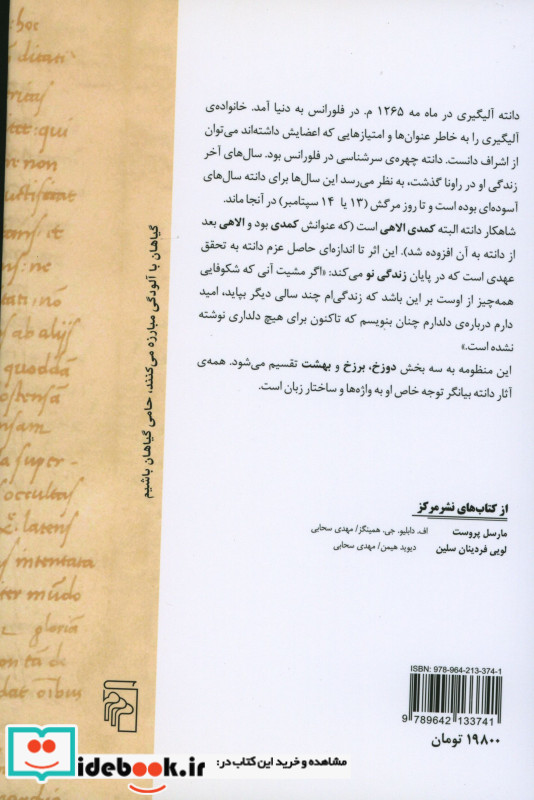 دانته آلیگیری در ماه مه ۱۲۶۵ م. در فلورانس به دنیا آمد. خانواده‌ی
آلیگیری را به خاطر عنوان‌ها و امتیازهایی که اعضایش داشته‌اند می‌توان
از اشراف دانست. دانته چهره‌ی سرشناسی در فلورانس بود. سال‌های آخر
زندگی او در راونا گذشت، به نظر می‌رسد این سال‌ها برای دانته سال‌های
آسوده‌ای بوده است و تا روز مرگش (۱۳ یا ۱۴ سپتامبر) در آنجا ماند.
شاهکار دانته البته کمدی الاهی است (که عنوانش کمدی بود و الاهی بعد
از دانته به آن افزوده شد). این اثر تا اندازه‌ای حاصل عزم دانته به تحقق
عهدی است که در پایان زندگی نو می‌کند: «اگر مشیت آنی که شکوفایی
همه‌چیز از اوست بر این باشد که زندگی‌ام چند سالی دیگر بپاید، امید
دارم درباره‌ی دلدارم چنان بنویسم که تاکنون برای هیچ دلداری نوشته
نشده است.»
این منظومه به سه بخش دوزخ، برزخ و بهشت تقسیم می‌شود. همه‌ی
آثار دانته بیانگر توجه خاص او به واژه‌ها و ساختار زبان است.
از کتاب‌های نشرمرکز
مارسل پروست اف. دابلیو. جی. همینگز/ مهدی سحابی
لویی فردینان سلین دیوید هیمن/ مهدی سحابی
ISBN: 978-964-213-374-1
9 789642 133741
۱۹۸۰۰ تومان
گیاهان با آلودگی مبارزه می‌کنند، حامی گیاهان باشیم
hoc
qui
non
quodda
super-
occultas
latens
intentata
mudo
gloria
مشاهده و خرید این کتاب در:
idebook.ir